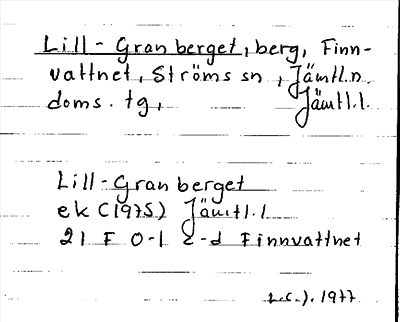 Lill-Granberget, berg, Finn-
vattnet, Ströms sn, Jämtl.n.
doms. tg, Jämtl.l.
Lill-Granberget
ek (1975) Jämtl.l
21 F 0-1 c-d Finnvattnet
L.C.J. 1977